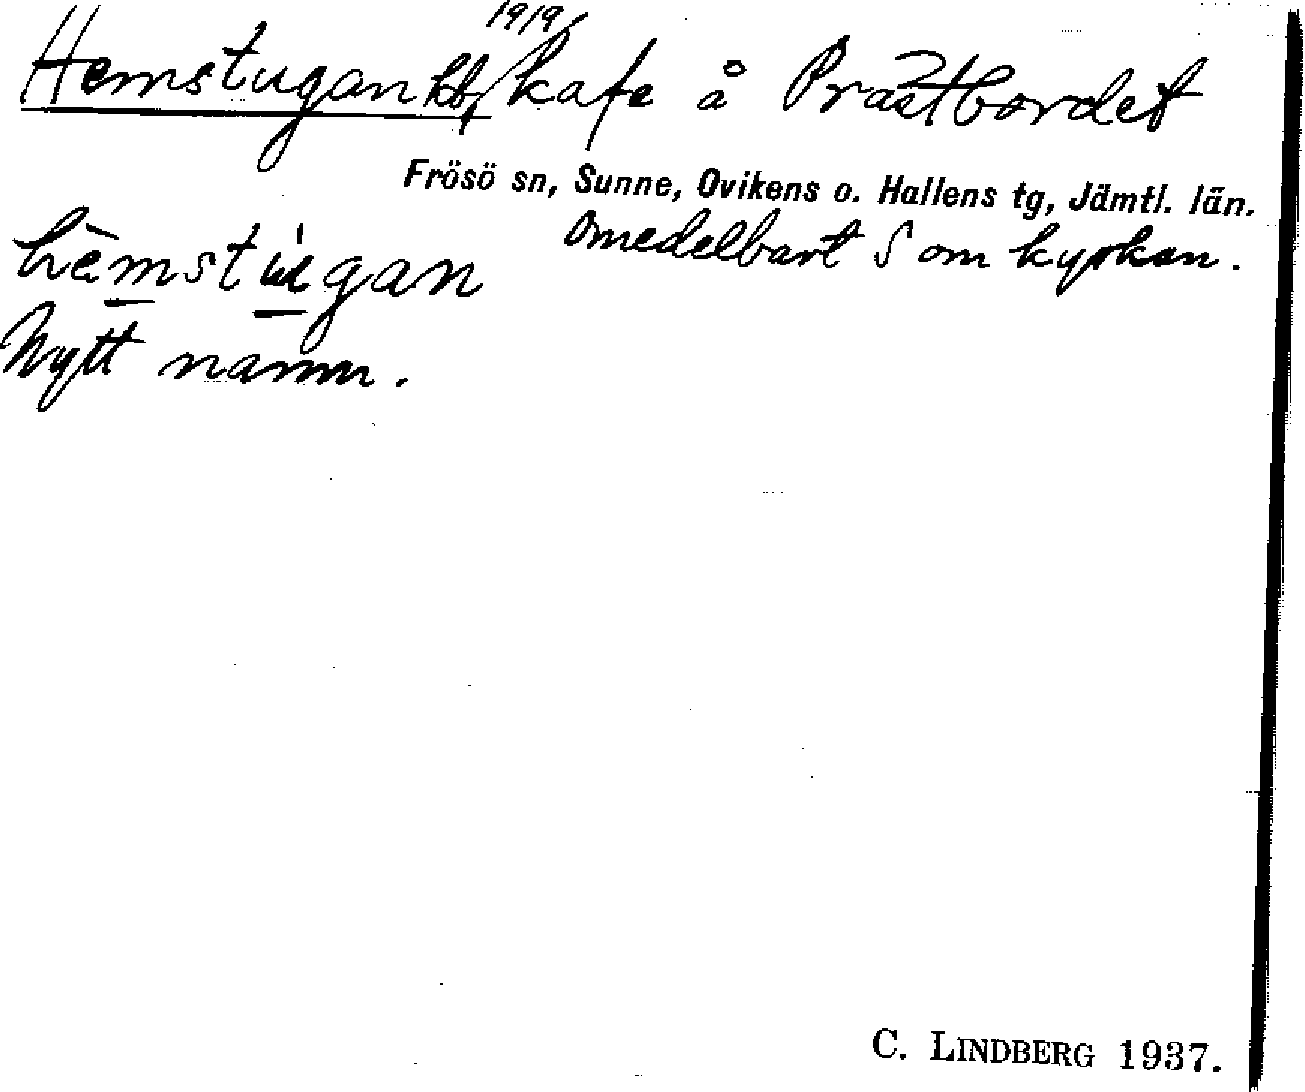 1919
Hemstugan kb, kafe å Prästbordet
Frösö sn, Sunne, Ovikens o. Hallens tg, Jämtl. län.
omedelbart S om kyrkan.
hèmstùgan
Nytt namn.
C. LINDBERG 1937.